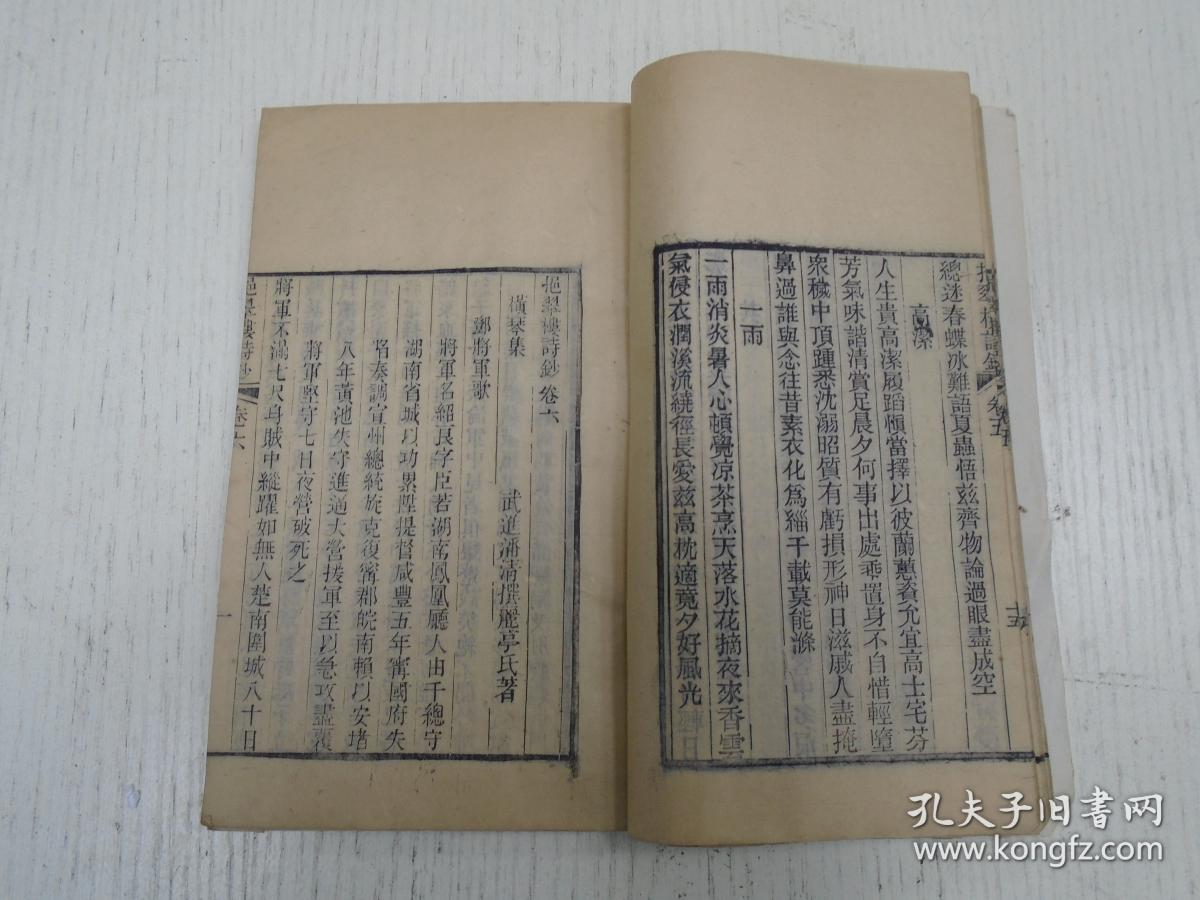 總迷春蝶冰難語夏蟲悟茲齊物論過眼盡成空
高潔
人生貴高潔履蹈慎當擇以彼蘭蕙姿允宜高士宅芬
芳氣味諧清賞足晨夕何事出處乖置身不自惜輕墮
衆穢中頂踵悉沈溺昭質有虧損形神日滋戚人盡掩
鼻過誰與念往昔素衣化爲緇千載莫能滌
一雨
一雨消炎暑人心頓覺涼茶烹天落水花摘夜來香雲
氣侵衣潤溪流繞徑長愛茲高枕適竟夕好風光
挹翠樓詩鈔
卷五
挹翠樓詩鈔卷六
橫琴集
武進潘清撰麗亭氏著
鄧將軍歌
將軍名紹良字臣若湖南鳳凰廳人由千總守
湖南省城以功累陞提督咸豐五年甯國府失
陷奏調宣州總統旋克復甯郡皖南賴以安堵
八年黃池失守進逼大營援軍至以急攻盡覆
將軍堅守七日夜營破死之
將軍不滿七尺身賊中縱躍如無人楚南圍城八十日
挹翠樓詩鈔
卷六
一
孔夫子旧书网
www.kongfz.com